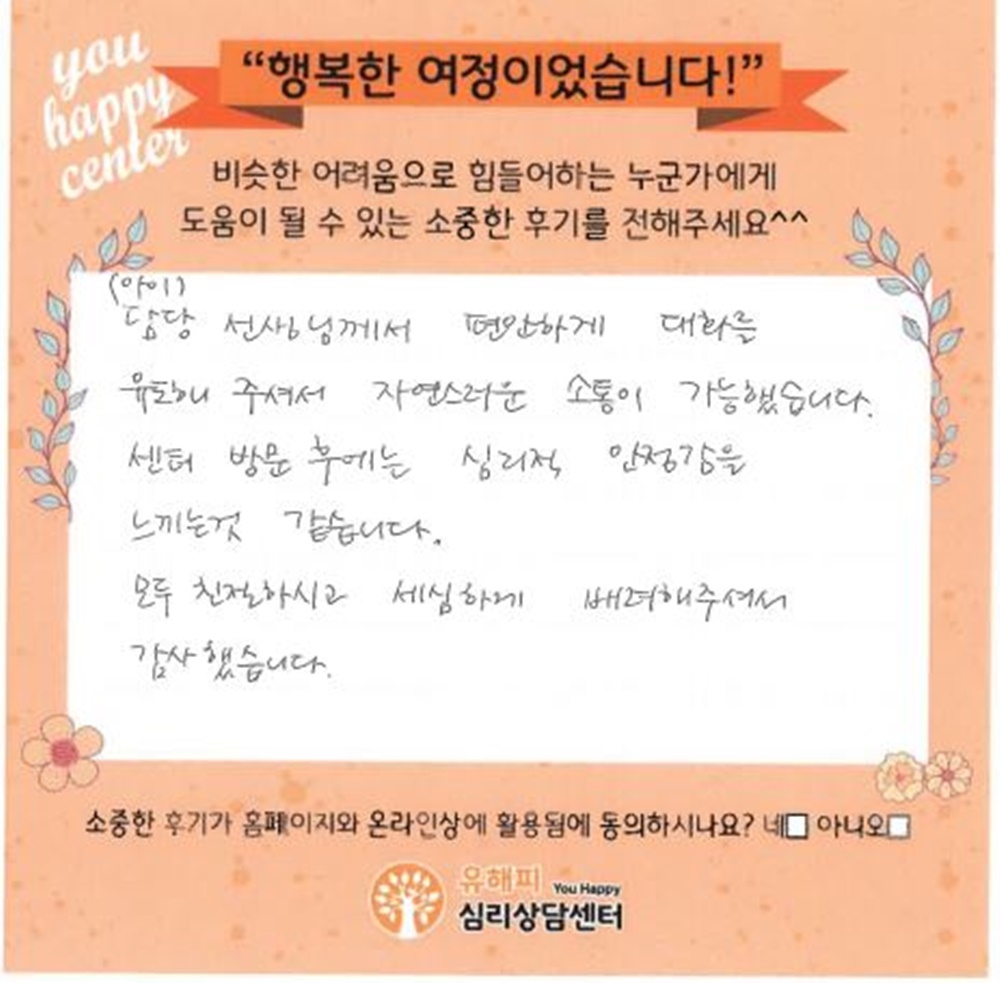 you
happy
center
“행복한 여정이었습니다!”
비슷한 어려움으로 힘들어하는 누군가에게
도움이 될 수 있는 소중한 후기를 전해주세요^^
(아이)
담당 선생님께서 편안하게 대화를
유도해 주셔서 자연스러운 소통이 가능했습니다.
센터 방문 후에는 심리적 안정감을
느끼는것 같습니다.
모두 친절하시고 세심하게 배려해주셔서
감사했습니다.
소중한 후기가 홈페이지와 온라인상에 활용됨에 동의하시나요? 네□ 아니오□
유해피 You Happy
심리상담센터